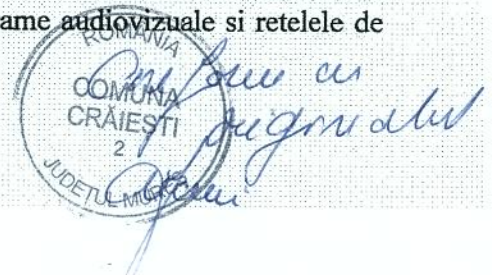 ame audiovizuale si retelele de
ROMÂNIA
COMUNA
CRĂIEȘTI
2
JUDEȚUL MUREȘ
Conform cu
originalul